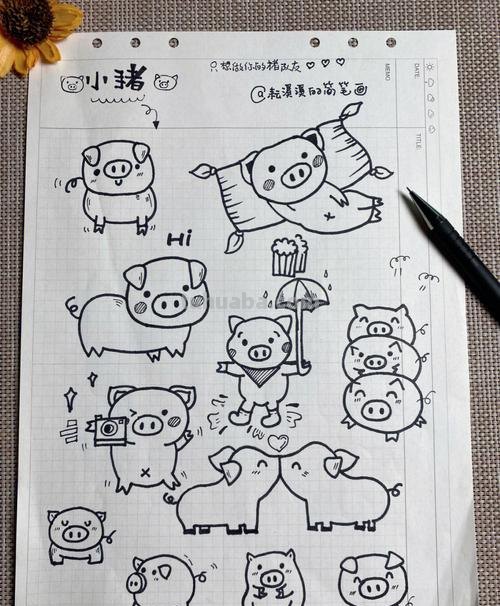 小猪
只想做你的猪队友
@耘溪溪的简笔画
MEMO
DATE:
TITLE:
Hi